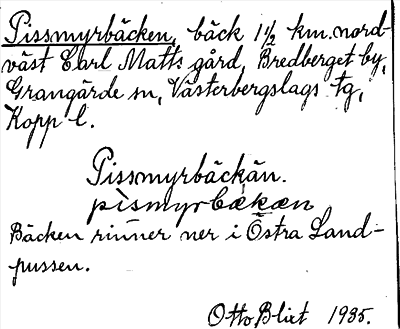 Pissmyrbäcken, bäck 1 1/2 km. nord-
väst Carl Matts gård, Bredberget by,
Grangärde sn, Västerbergslags tg,
Kopp l.
Pissmyrbäckän.
pismyrbäkæn
Bäcken rinner ner i Östra Land-
pussen.
Otto Blixt 1935.